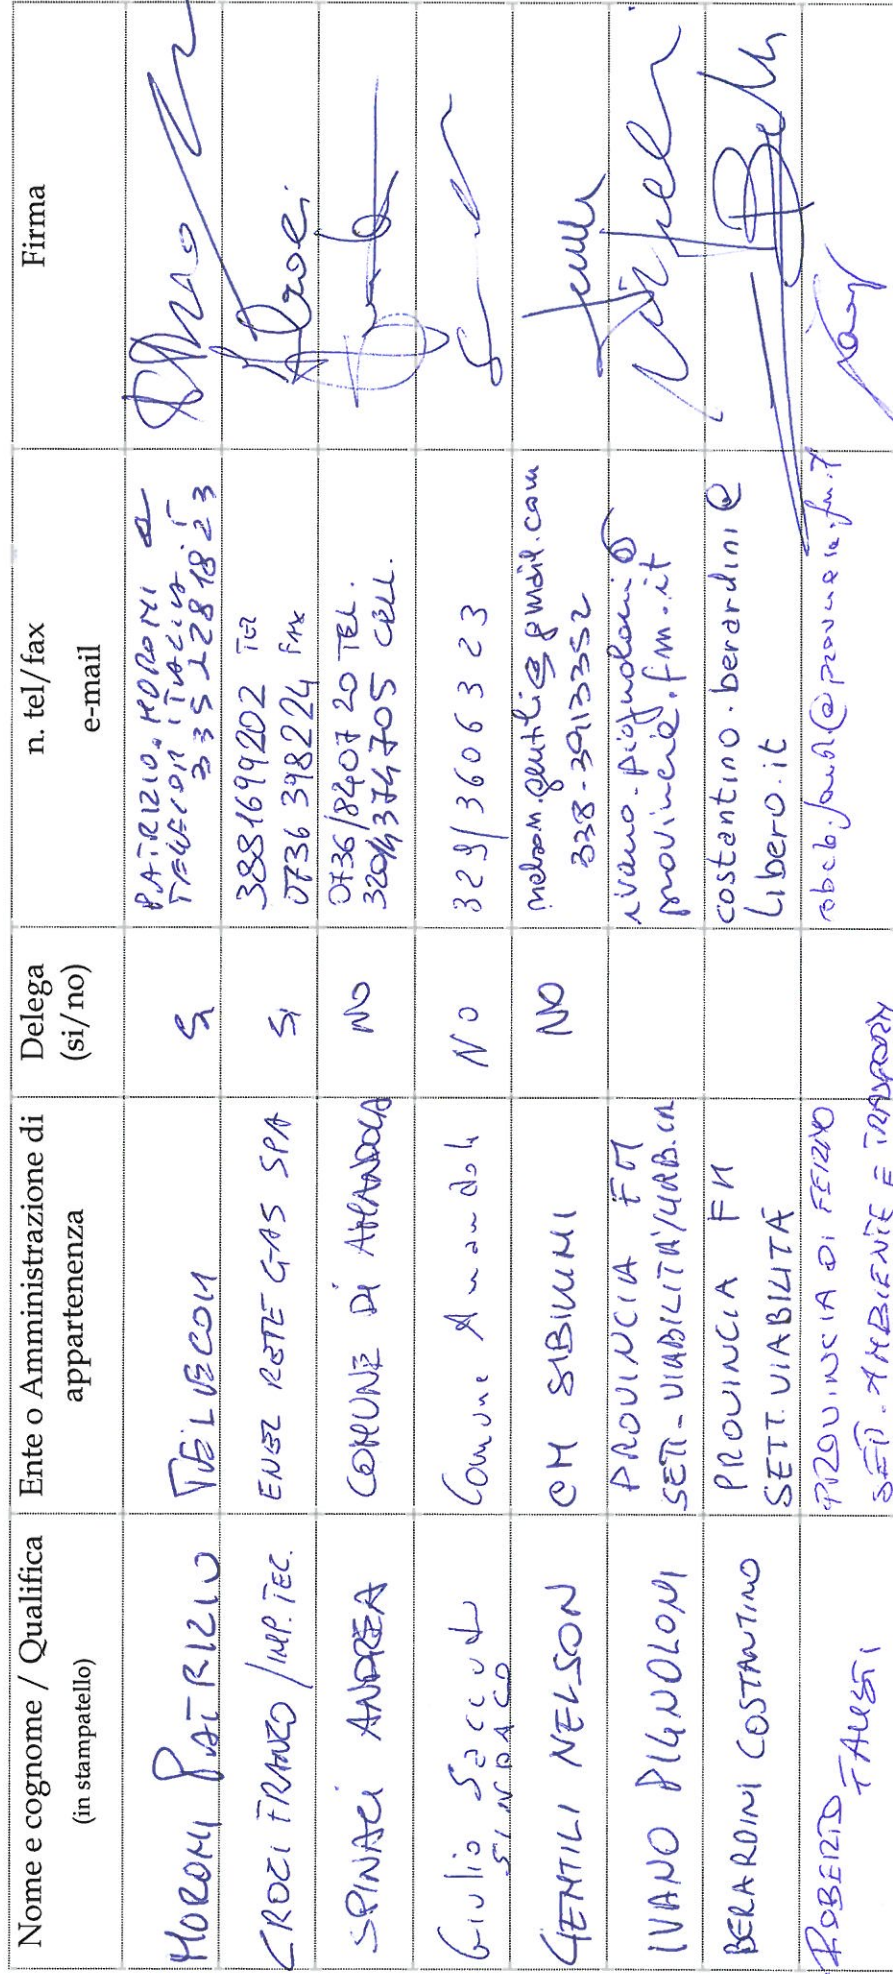 Nome e cognome / Qualifica
(in stampatello)
Ente o Amministrazione di
appartenenza
Delega
(si/no)
n. tel/fax
e-mail
Firma
MORONI PATRIZIO
TELECOM
SI
PATRIZIO.MORONI @
TELECOMITALIA.IT
3352281823
CROCI FRANCO / IMP. TEC.
ENEL RETE GAS SPA
SI
3881699202 TEL
0736 398224 FAX
SPINACI ANDREA
COMUNE DI AMANDOLA
NO
0736/840720 TEL.
320/4374705 CELL.
Giulio Saccuti
SINDACO
Comune Amandola
NO
329/3606323
GENTILI NELSON
CM SIBILLINI
NO
nelson.gentili@gmail.com
338-3913352
IVANO PIGNOLONI
PROVINCIA FM
SETT. VIABILITA'/URB.CA
ivano.pignoloni@
provincia.fm.it
BERARDINI COSTANTINO
PROVINCIA FM
SETT. VIABILITÀ
costantino.berardini@
Libero.it
ROBERTO
FAUSTI
PROVINCIA DI FERMO
SETT. AMBIENTE E TRASPORTI